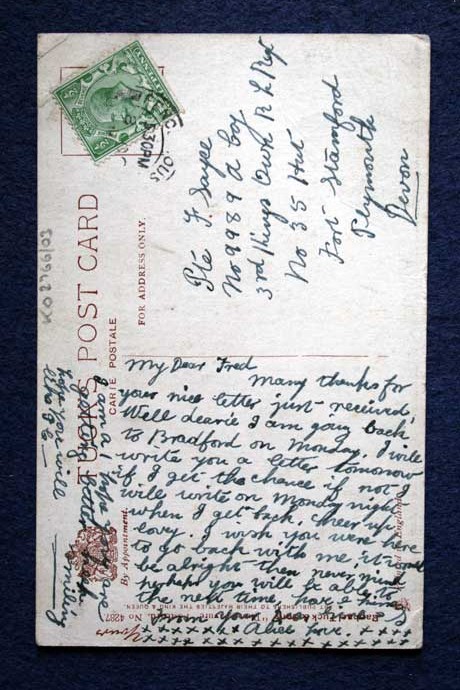 TUCK'S POST CARD
CARTE POSTALE
FOR ADDRESS ONLY.
KO 2766/03
Pte F. Sayee
No 9989 A Coy
3rd Kings Own R L Regt
No 35 Hut
Fort Stamford
Plymouth
Devon
30PM
My Dear Fred
Many thanks for
your nice letter just received,
Well dearie I am going back
to Bradford on Monday. I will
write you a letter tomorrow
if I get the chance if not I
will write on Monday night
when I get back. cheer up
lovy. I wish you were here
to go back with me, it would
be alright then never mind
perhaps you will be able to
the next time, love &
from your
Alice love.
Yours
x x x x x x x x x
hope you will
like
I am a
getting better
smiling
By Appointment.
Raphael Tuck & Sons
PUBLISHERS TO THEIR MAJESTIES THE KING & QUEEN
No 4287